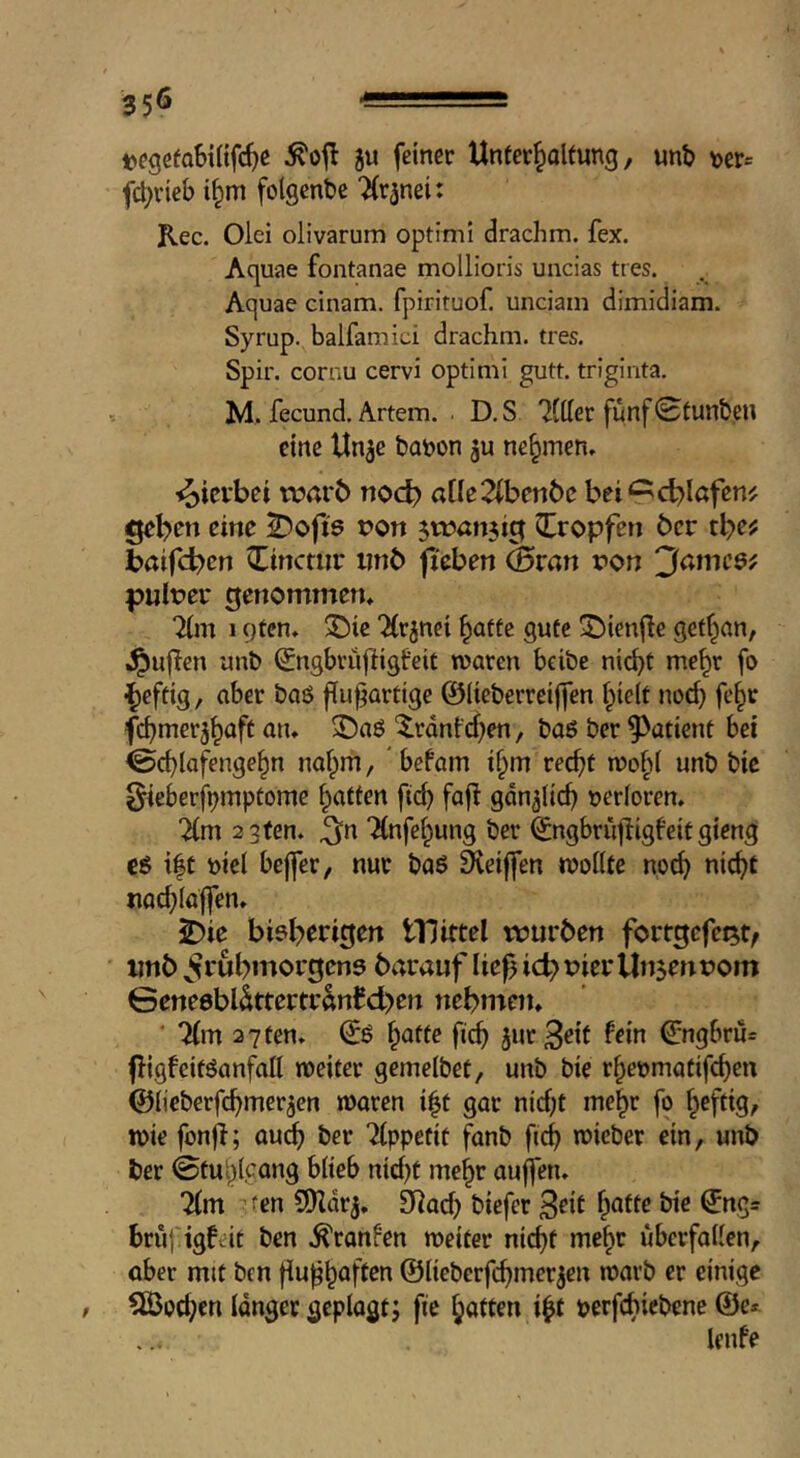 356
vegetabilische Kost zu seiner Unterhaltung, und ver-
schrieb ihm folgende Arznei:
Rec. Olei olivarum optimi drachm. sex.
Aquae fontanae mollioris uncias tres.
Aquae cinam. spirituos. unciam dimidiam.
Syrup. balsamici drachm. tres.
Spir. cornu cervi optimi gutt. triginta.
M. secund. Artem. D. S Aller fünf Stunden
eine Unze davon zu nehmen.
Hierbei ward noch alle Abende bei Schlafen-
gehen eine Dosis von zwanzig Tropfen der the-
baischen Tinctur und sieben Gran von James-
pulver genommen.
Am 19ten. Die Arznei hatte gute Dienste gethan,
Husten und Engbrüstigkeit waren beide nicht mehr so
heftig, aber das flußartige Gliederreissen hielt noch sehr
schmerzhaft an. Das Tränkchen, das der Patient bei
Schlafengehn nahm, bekam ihm recht wohl und die
Fiebersymptome hatten sich fast gänzlich verloren.
Am 23ten. In Ansehung der Engbrüstigkeit gieng
es ißt viel besser, nur das Reissen wollte noch nicht
nachlassen.
Die bisherigen Mittel wurden fortgesetzt,
und Frühmorgens darauf ließ ich vier Unzen vom
Seneesblättertränkchen nehmen.
Am 27ten. Es hatte sich zur Zeit kein Engbrü-
stigkeitsanfall weiter gemeldet, und die rhevmatischen
Gliederschmerzen waren ißt gar nicht mehr so heftig,
wie sonst; auch der Appetit fand sich wieder ein, und
der Stuhlgang blieb nicht mehr aussen.
Am ten März. Nach dieser Zeit hatte die Eng-
brüstigkeit den Kranken weiter nicht mehr überfallen,
aber mit den flußhaften Gliederschmerzen ward er einige
Wochen länger geplagt; sie hatten ißt verschiedene Ge-
lenke